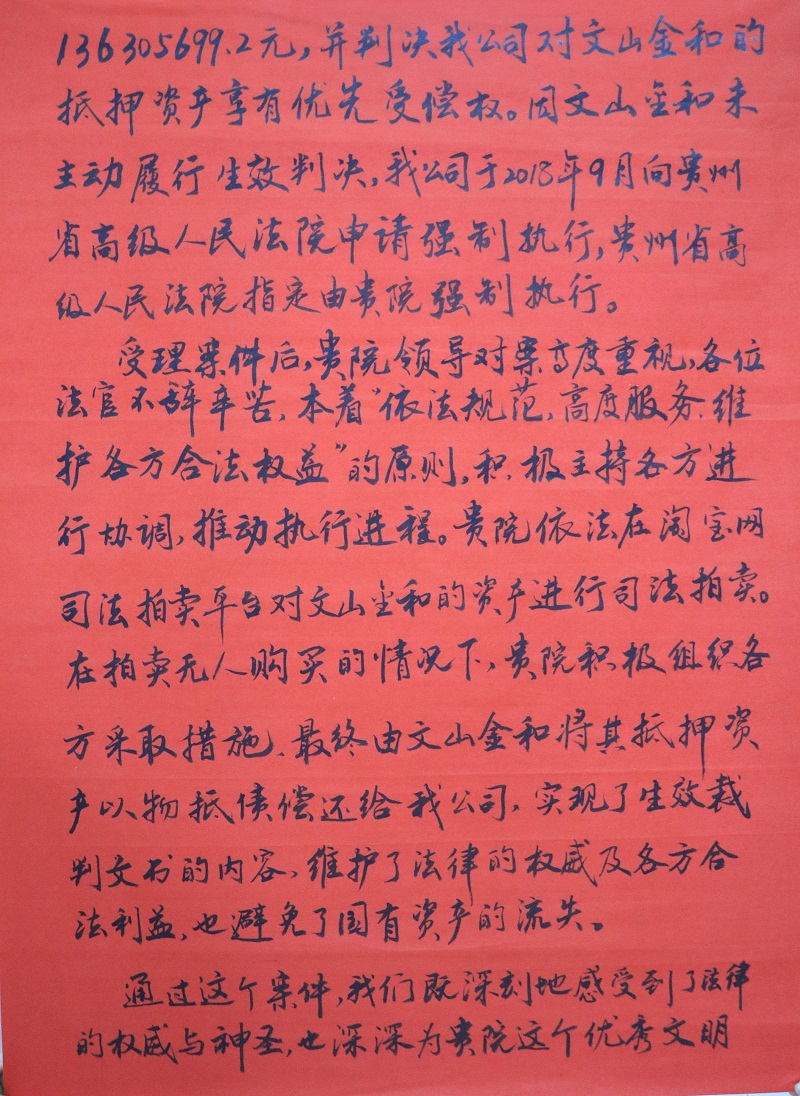 136305699.2元,并判决我公司对文山金和的
抵押资产享有优先受偿权。因文山金和未
主动履行生效判决,我公司于2018年9月向贵州
省高级人民法院申请强制执行,贵州省高
级人民法院指定由贵院强制执行。
受理案件后,贵院领导对案高度重视,各位
法官不辞辛苦,本着“依法规范,高度服务、维
护各方合法权益”的原则,积极主持各方进
行协调,推动执行进程。贵院依法在淘宝网
司法拍卖平台对文山金和的资产进行司法拍卖。
在拍卖无人购买的情况下,贵院积极组织各
方采取措施、最终由文山金和将其抵押资
产以物抵债偿还给我公司,实现了生效裁
判文书的内容,维护了法律的权威及各方合
法利益,也避免了国有资产的流失。
通过这个案件,我们既深刻地感受到了法律
的权威与神圣,也深深为贵院这个优秀文明